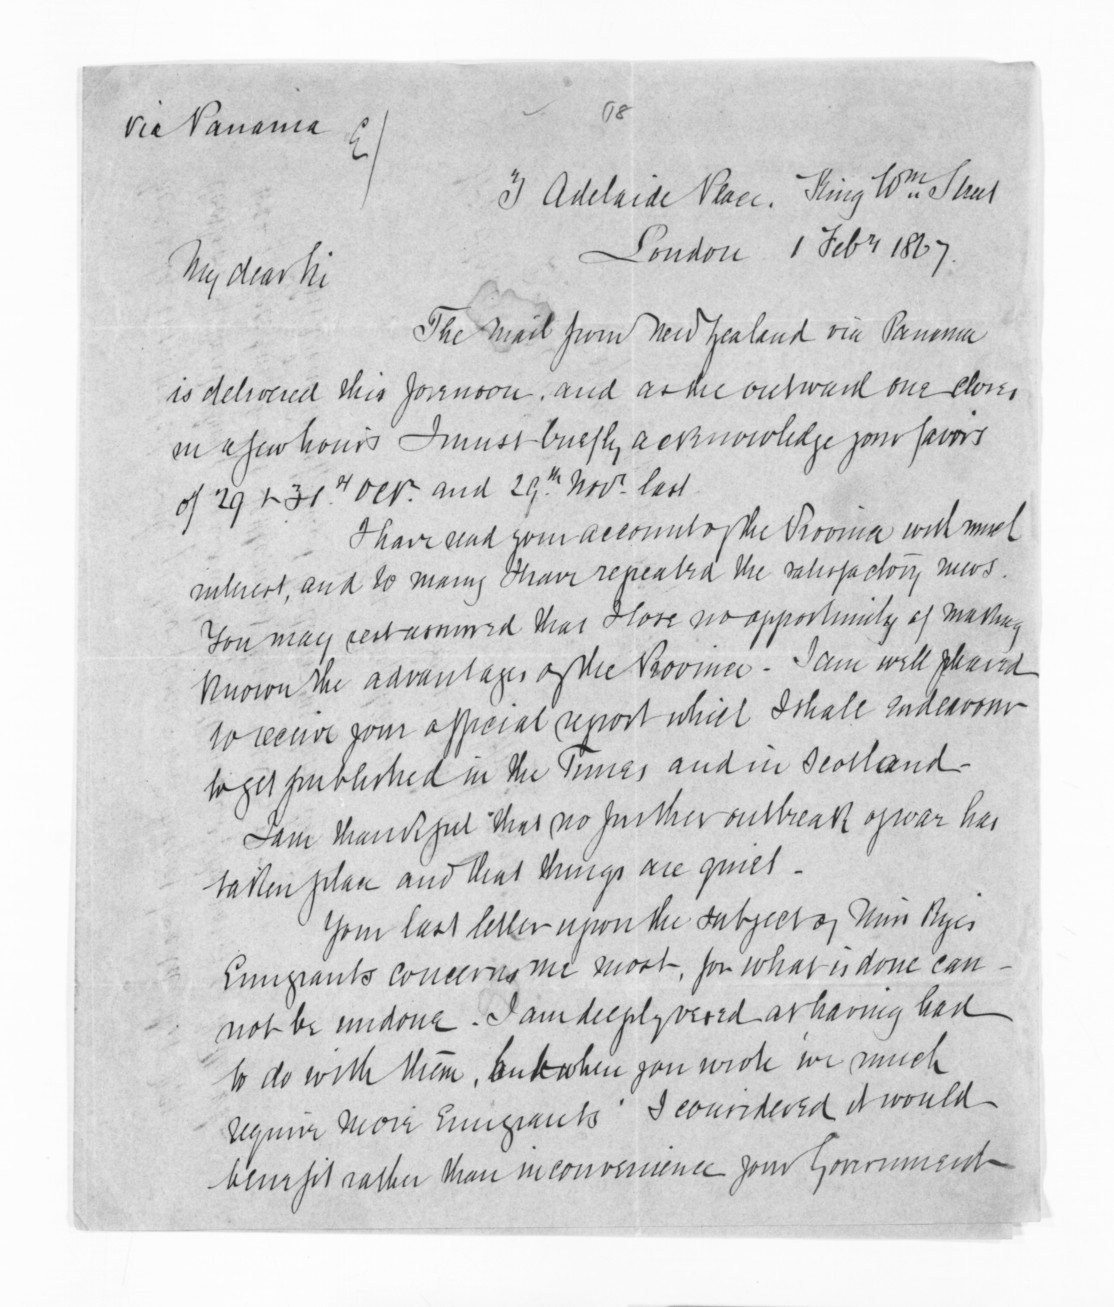 via Panama
98
3 Adelaide Place. King Wm. Street
London 1 Feby 1867.
My dear Sir
The Mail from New Zealand via Panama
is delivered this forenoon, and as the outward one closes
in a few hours I must briefly acknowledge your favors
of 29 & 31st Octr. and 29th Novr. last
I have read your account of the Province with much
interest, and to many I have repeated the satisfactory news.
You may rest assured that I lose no opportunity of making
known the advantages of the Province - I am well pleased
to receive your official report which I shall endeavour
to get published in the Times and in Scotland -
I am thankful that no further outbreak of war has
taken place and that things are quiet -
Your last letter upon the subject of Miss Rye's
Emigrants concerns me most, for what is done can -
not be undone - I am deeply vexed at having had
to do with them, but when you wrote 'we much
require more Emigrants' I considered it would
benefit rather than inconvenience your Government